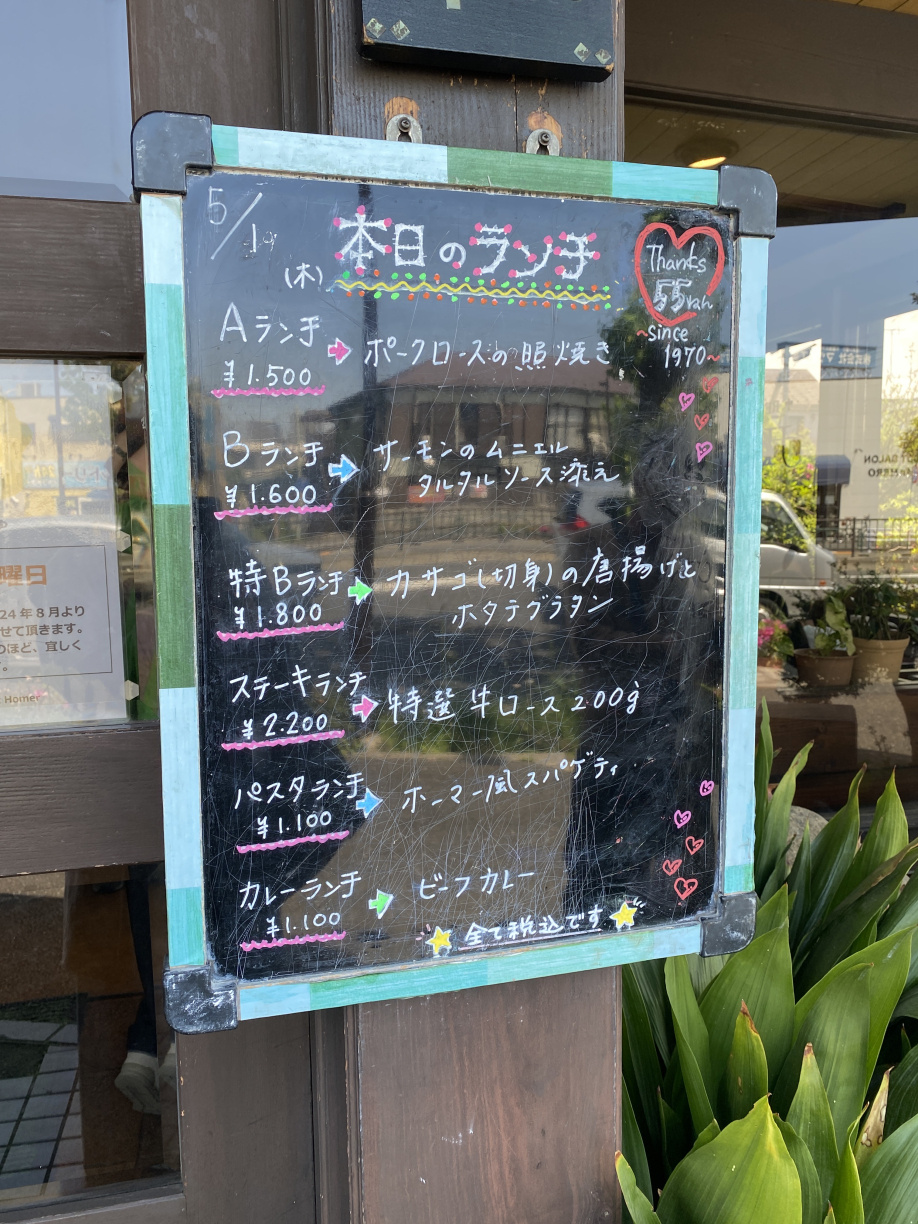 5/1
(木)
本日のランチ
Thanks
55th
~since
1970~
Aランチ
¥1.500
ポークロースの照焼き
Bランチ
¥1.600
サーモンのムニエル
タルタルソース添え
特Bランチ
¥1.800
カサゴ(切身)の唐揚げと
ホタテグラタン
ステーキランチ
¥2.200
特選牛ロース200g
パスタランチ
¥1.100
ホーマー風スパゲティ
カレーランチ
¥1.100
ビーフカレー
全て税込です
曜日
24年8月より
せて頂きます。
のほど、宜しく
。
Homer